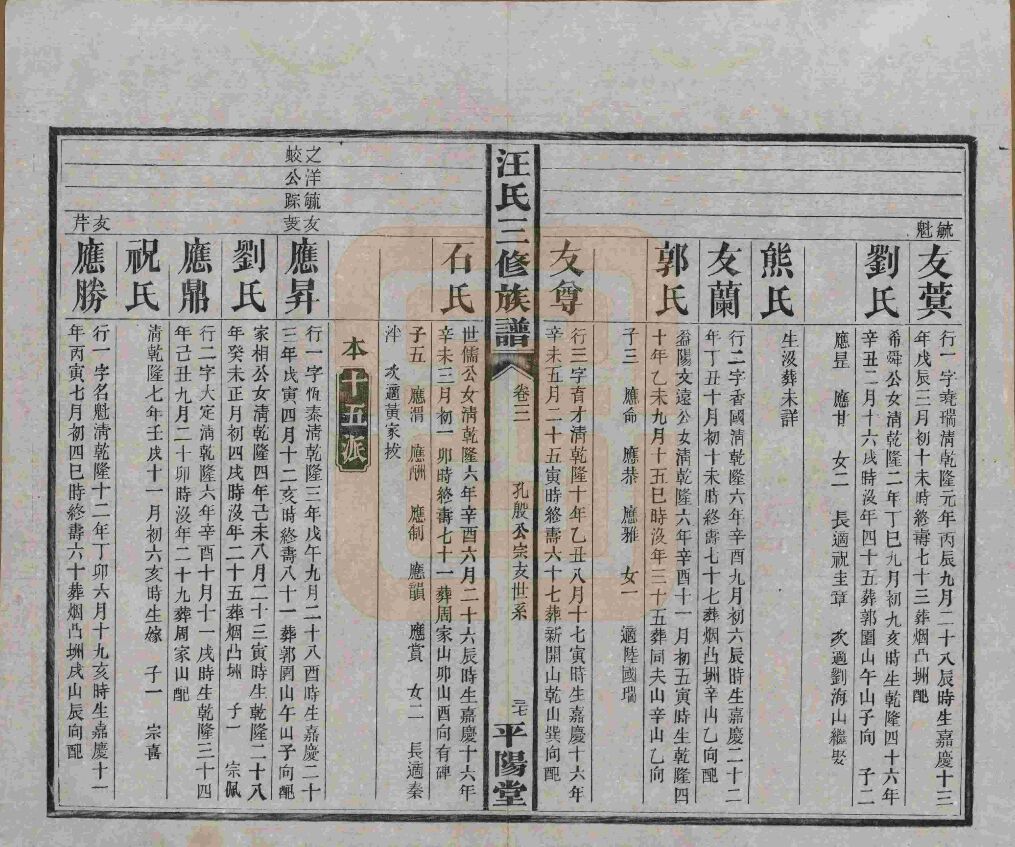 毓魁
友蓂
行一字堯瑞清乾隆元年丙辰九月二十八辰時生嘉慶十三
年戊辰三月初十未時終壽七十三葬烟凸坳配
劉氏
希舜公女清乾隆二年丁巳九月初九亥時生乾隆四十六年
辛丑二月十六戌時沒年四十五葬郭園山午山子向 子二
應昱 應甘 女二 長適祝圭章 次適劉海山繼娶
熊氏
生汲葬未詳
友蘭
行二字香國清乾隆六年辛酉九月初六辰時生嘉慶二十二
年丁丑十月初十未時終壽七十七葬烟凸坳辛山乙向配
郭氏
益陽文遠公女清乾隆六年辛酉十一月初五寅時生乾隆四
十年乙未九月十五巳時沒年三十五葬同夫山辛山乙向
子三 應命 應恭 應雅 女一 適陸國瑞
友尊
行三字育才清乾隆十年乙丑八月十七寅時生嘉慶十六年
辛未五月二十五寅時終壽六十七葬新開山乾山巽向配
汪氏三修族譜
卷三
孔殷公宗友世系
平陽堂
石氏
世儒公女清乾隆六年辛酉六月二十六辰時生嘉慶十六年
辛未三月初一卯時終壽七十一葬周家山卯山酉向有碑
子五 應渭 應酬 應制 應韻 應賞 女二 長適秦
泮 次適黃家拔
本十五派
之洋毓友
蛟公踪芰
應昇
行一字恆泰清乾隆三年戊午九月二十八酉時生嘉慶二十
三年戊寅四月十二亥時終壽八十一葬郭園山午山子向配
劉氏
家相公女清乾隆四年己未八月二十三寅時生乾隆二十八
年癸未正月初四戌時沒年二十五葬烟凸坳 子一 宗佩
應鼎
行二字大定清乾隆六年辛酉十月十一戌時生乾隆三十四
年己丑九月二十卯時沒年二十九葬周家山配
祝氏
清乾隆七年壬戌十一月初六亥時生嫁 子一 宗喜
友芹
應勝
行一字名魁清乾隆十二年丁卯六月十九亥時生嘉慶十一
年丙寅七月初四巳時終壽六十葬烟凸坳戌山辰向配